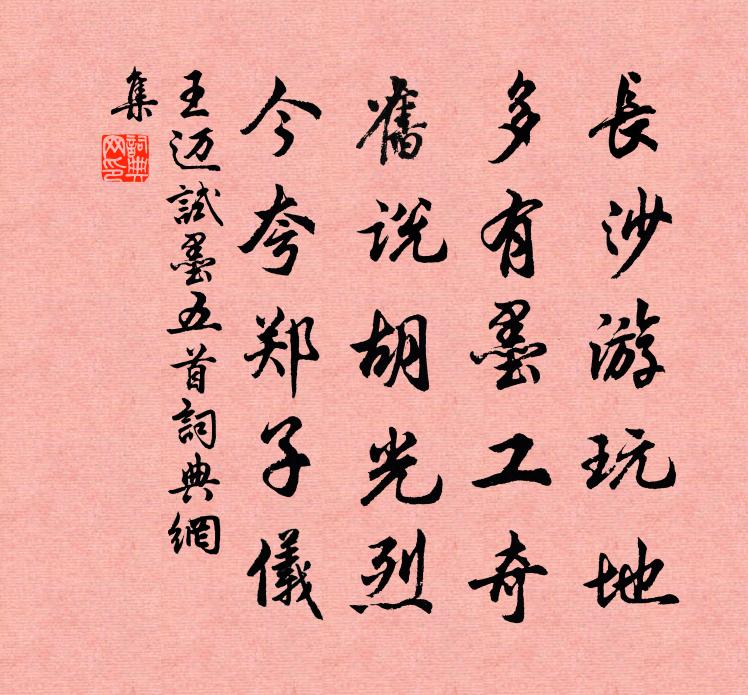 長沙游玩地
多有墨工奇
舊说胡光烈
今夸郑子儀
王迈試墨五首詞典網
集
詞典
网印